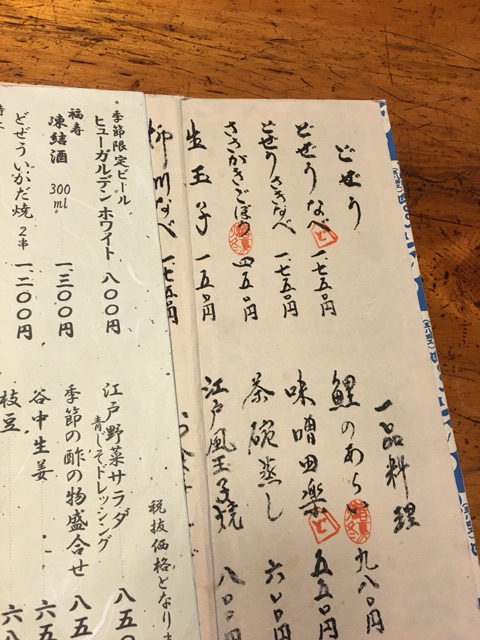 どぜう
どぜうなべ 一、七五〇円
どぜうさきなべ 一、七五〇円
ささがきごぼう 四五〇円
生玉子 一五〇円
柳川なべ 一、七五〇円
一品料理
鯉のあらい 九八〇円
味噌田楽 五五〇円
茶碗蒸し 六〇〇円
江戸風玉子焼 八〇〇
季節限定ビール
ヒューガルデンホワイト 八〇〇円
福寿
凍結酒 300ml 一、三〇〇円
どぜういかだ焼 2串 一、二〇〇円
税抜価格となりま
江戸野菜サラダ 八五〇
青じそドレッシング
季節の酢の物盛合せ 八五
谷中生姜 六五
枝豆 六